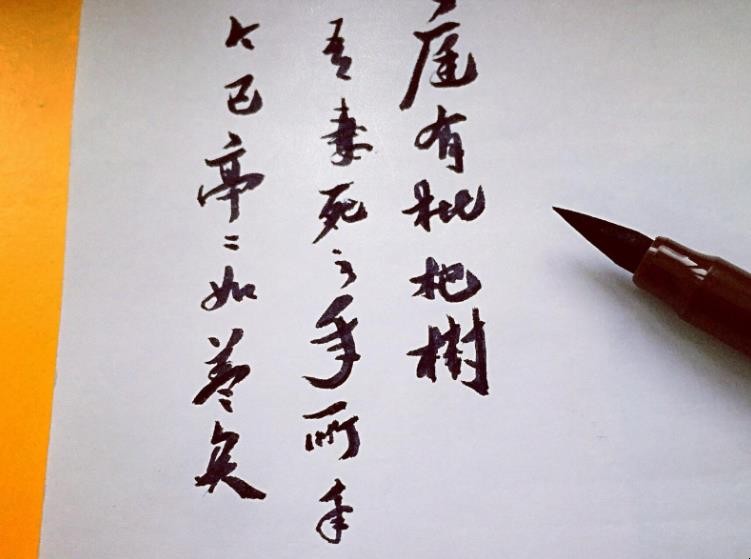 庭有枇杷樹
吾妻死之年所手
今已亭〻如盖矣